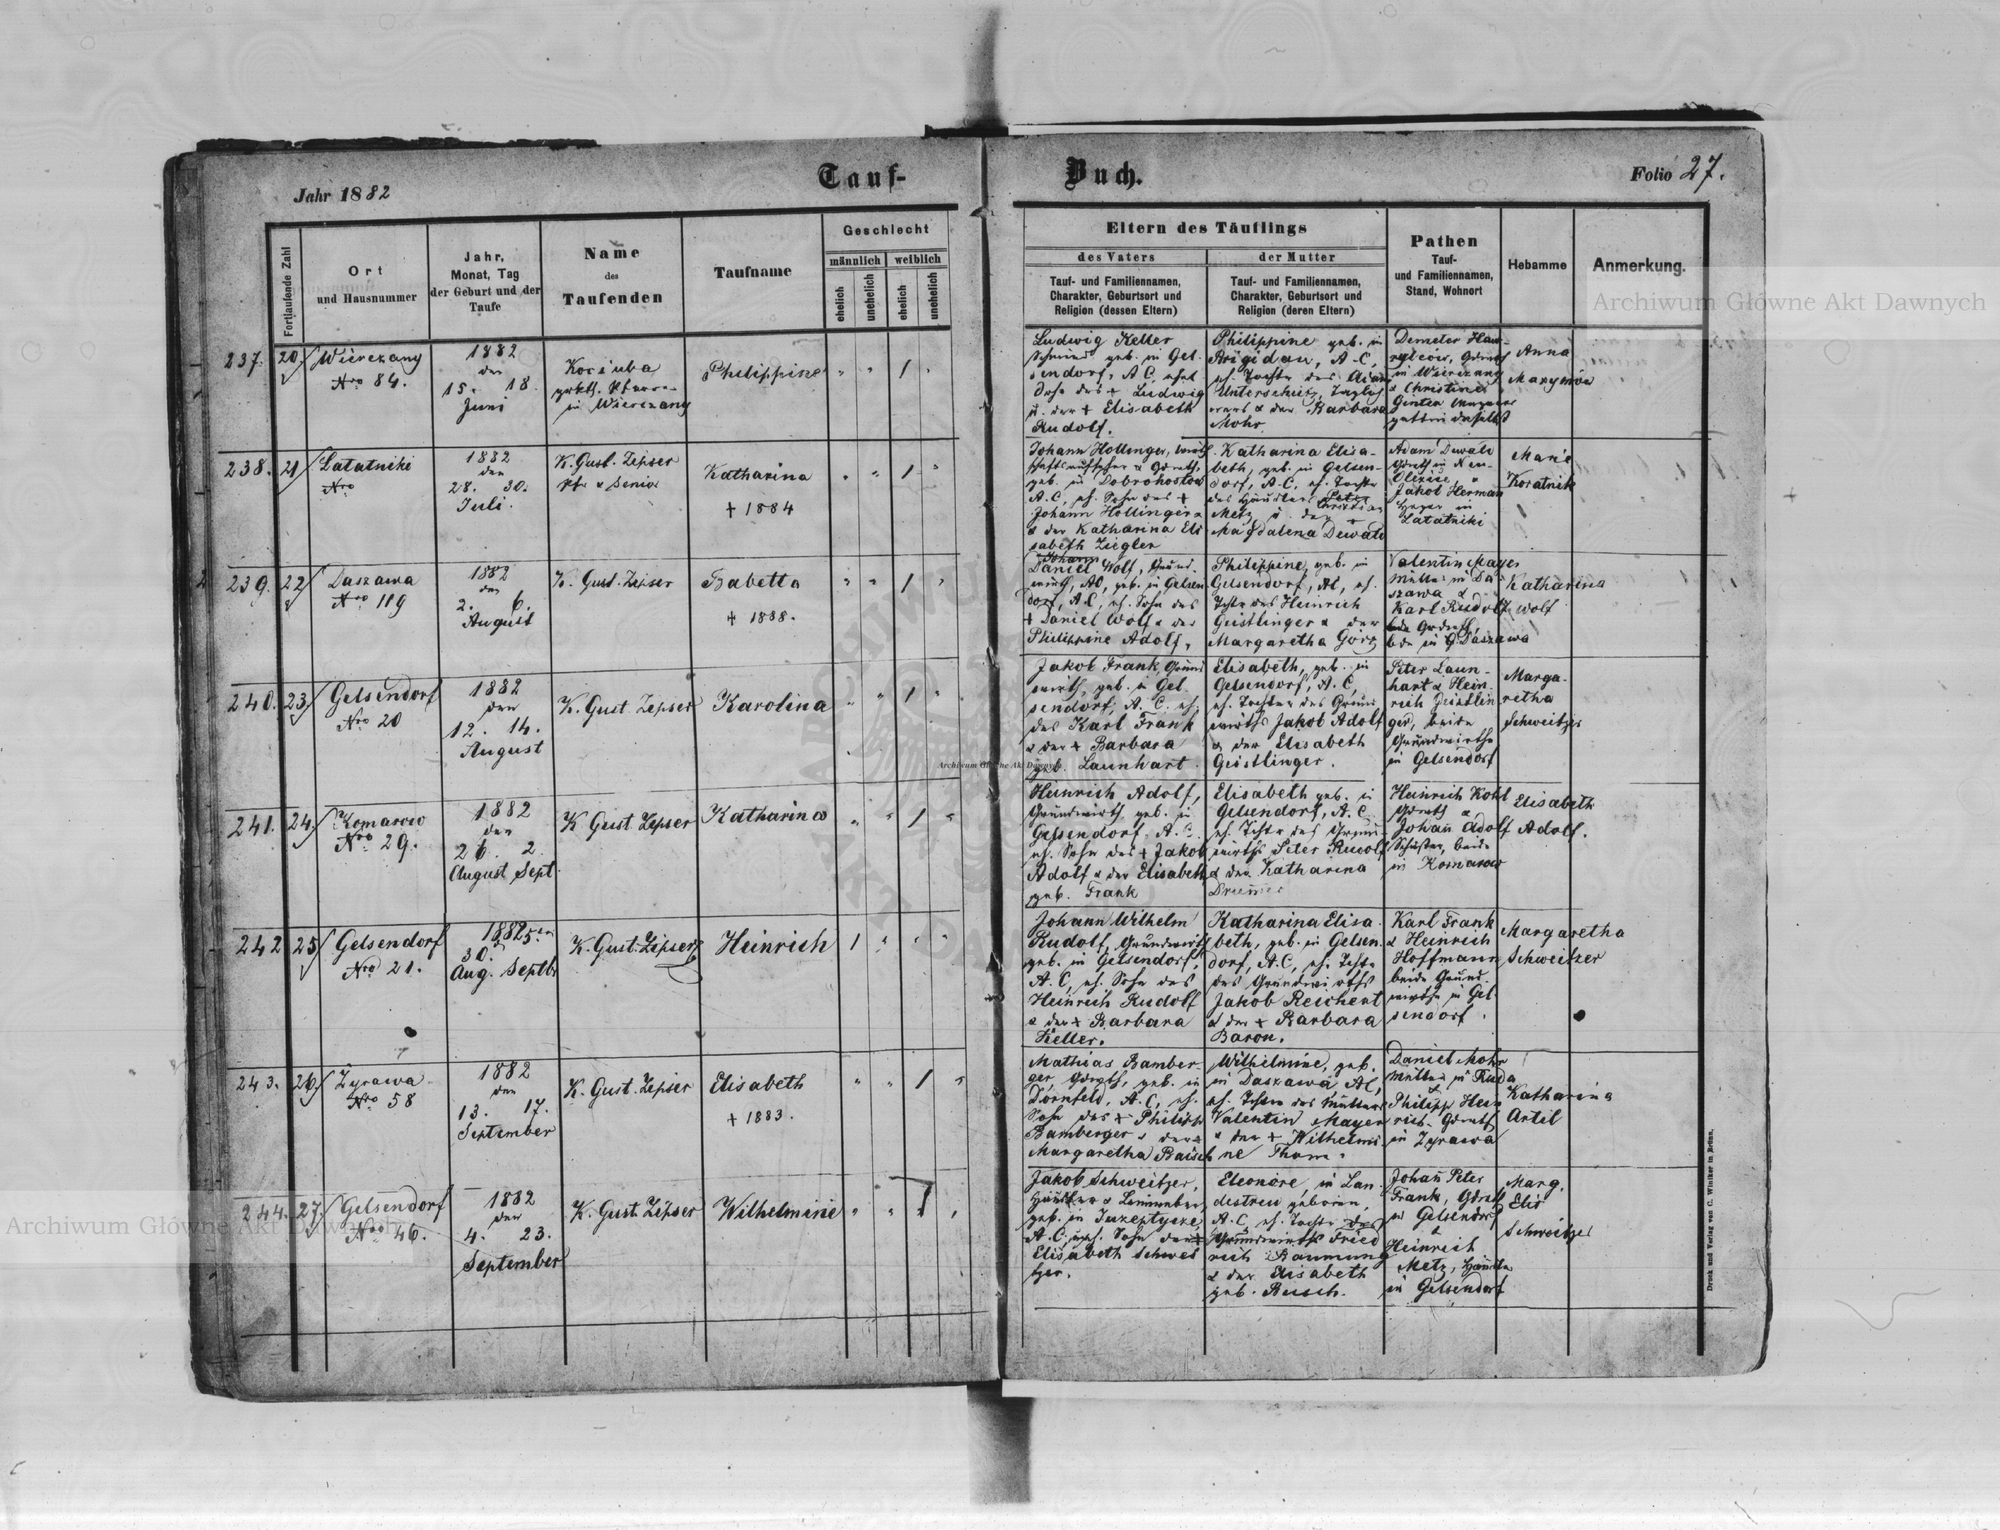 Jahr 1882
Tauf-
Buch.
Folio 27.
Fortlaufende Zahl
Ort
und Hausnummer
Jahr,
Monat, Tag
der Geburt und der
Taufe
Name
des
Taufenden
Taufname
Geschlecht
männlich
weiblich
ehelich
unehelich
ehelich
unehelich
Eltern des Täuflings
des Vaters
der Mutter
Tauf- und Familiennamen,
Charakter, Geburtsort und
Religion (dessen Eltern)
Tauf- und Familiennamen,
Charakter, Geburtsort und
Religion (deren Eltern)
Pathen
Tauf-
und Familiennamen,
Stand, Wohnort
Hebamme
Anmerkung.
237. 20
Wierczany
Nro 84.
1882
den
15. 18.
Juni
Kociuba
in Wierczany
Philippine
Ludwig Keller
Schmied geb. in Gel-
sendorf, A.C, ehel
Sohn des + Ludwig
u. der + Elisabeth
Rudolf.
Philippine geb. in
Brigidau, A.C,
eh. Tochter des Adam
& der Barbara
Mohr
Demeter Haw-
in Wierczany
& Christine
Ginter
gattin daselbst
Anna
238. 21
Latatniki
Nro
1882
den
28. 30.
Juli.
K. Gust. Zipser
Pfr & Senior
Katharina
+ 1884
Johann Hollinger,
geb. in Dobrohostow
A.C, eh. Sohn des +
Johann Hollinger
& der Katharina Eli
sabeth Ziegler
Katharina Elisa-
beth, geb. in Gelsen-
dorf, A.C. eh. Tochter
des Häuslers Peter
Christian
Metz u. der +
Magdalena Dewald
Adam Dewald
Grdwth in Neu-
Jakob Herman
in
Latatniki
Marie
Koratnik
239. 22
Daszawa
Nro 119
1882
den
2. 6.
August
K. Gust. Zipser
Babetta
+ 1888.
Johann
Daniel Wolf, Grund-
wirth, AC, geb. in Gelsen
dorf, A.C, eh. Sohn des
+ Daniel Wolf & der
Philippine Adolf.
Philippine, geb. in
Gelsendorf, AC, eh.
Tchtr des Heinrich
Geistlinger & der
Margaretha Görz
Valentin Mayer
Müller in Da-
szawa &
Karl Rudolf
Grdwth,
bde in G. Daszawa
Katharina
Wolf
240. 23
Gelsendorf
Nro 20
1882
den
12. 14.
August
K. Gust Zipser
Karolina
Jakob Frank, Grund
wirth, geb. in Gel-
sendorf, A.C. eh.
des Karl Frank
& der + Barbara
geb. Launhart
Elisabeth, geb. in
Gelsendorf, A.C,
eh. Tochter des Grund
wirths Jakob Adolf
& der Elisabeth
Geistlinger.
Peter Laun-
hart & Hein-
rich Geistlin
ger, beide
Grundwirthe
in Gelsendorf
Marga-
retha
Schweitzer
241. 24
Komarow
Nro 29.
1882
den
26. 2.
August Sept.
K Gust Zipser
Katharina
Heinrich Adolf,
Grundwirth, geb. in
Gelsendorf, A.C.
eh. Sohn des + Jakob
Adolf & der Elisabeth
geb. Frank
Elisabeth geb. in
Gelsendorf, A.C
eh. Tchtr des Grund
wirths Peter Rudolf
& der Katharina
Heinrich Kohl
Grdwth &
Johan Adolf
Schuster, beide
in Komarow
Elisabeth
Adolf.
242 25
Gelsendorf
Nro 21.
1882
30. 5ten
Aug. Septbr
K. Gust. Zipser
Heinrich
Johann Wilhelm
Rudolf, Grundwirth
geb. in Gelsendorf,
A.C, eh. Sohn des
Heinrich Rudolf
& der + Barbara
Keller.
Katharina Elisa-
beth, geb. in Gelsen
dorf, A.C, eh. Tchtr
des Grundwirths
Jakob Reichert
& der + Barbara
Baron.
Karl Frank
& Heinrich
Hoffmann
beide Grund
wirthe in Gel-
sendorf.
Margaretha
Schweitzer
243. 26
Zyrawa
Nro 58
1882
den
13. 17.
September
K. Gust. Zipser
Elisabeth
+ 1883.
Mathias Bamber-
ger, Grdwth, geb. in
Dornfeld, A.C, eh.
Sohn des + Philipp
Bamberger & der +
Margaretha Baisch
Wilhelmine, geb.
in Daszawa AC,
eh. Tchtr des Müllers
Valentin Mayer
& der + Wilhelmi
ne Thom.
Daniel Mohr
Müller in Ruda
&
Philipp Hein
rich, Grdwth
in Zyrawa
Katharina
Artil
244. 27
Gelsendorf
Nro 46.
1882
den
4. 23.
September
K. Gust. Zipser
Wilhelmine
Jakob Schweitzer,
Häusler & Leinweber
geb. in
A.C, uneh. Sohn der
Elisabeth Schwei
tzer.
Eleonore, in Lan-
destreu geboren,
A.C, eh. Tochter des
Grundwirths Fried
rich Baumung
& der Elisabeth
geb. Busch.
Johan Peter
Frank, Grdwth
in Gelsendorf
&
Heinrich
Metz, Häusler
in Gelsendorf
Marg.
Elis
Schweitzer
Druck und Verlag von C. Winiker in Brünn.
Archiwum Główne Akt Dawnych
Archiwum Główne Akt Dawnych
Archiwum Główne Akt Dawnych